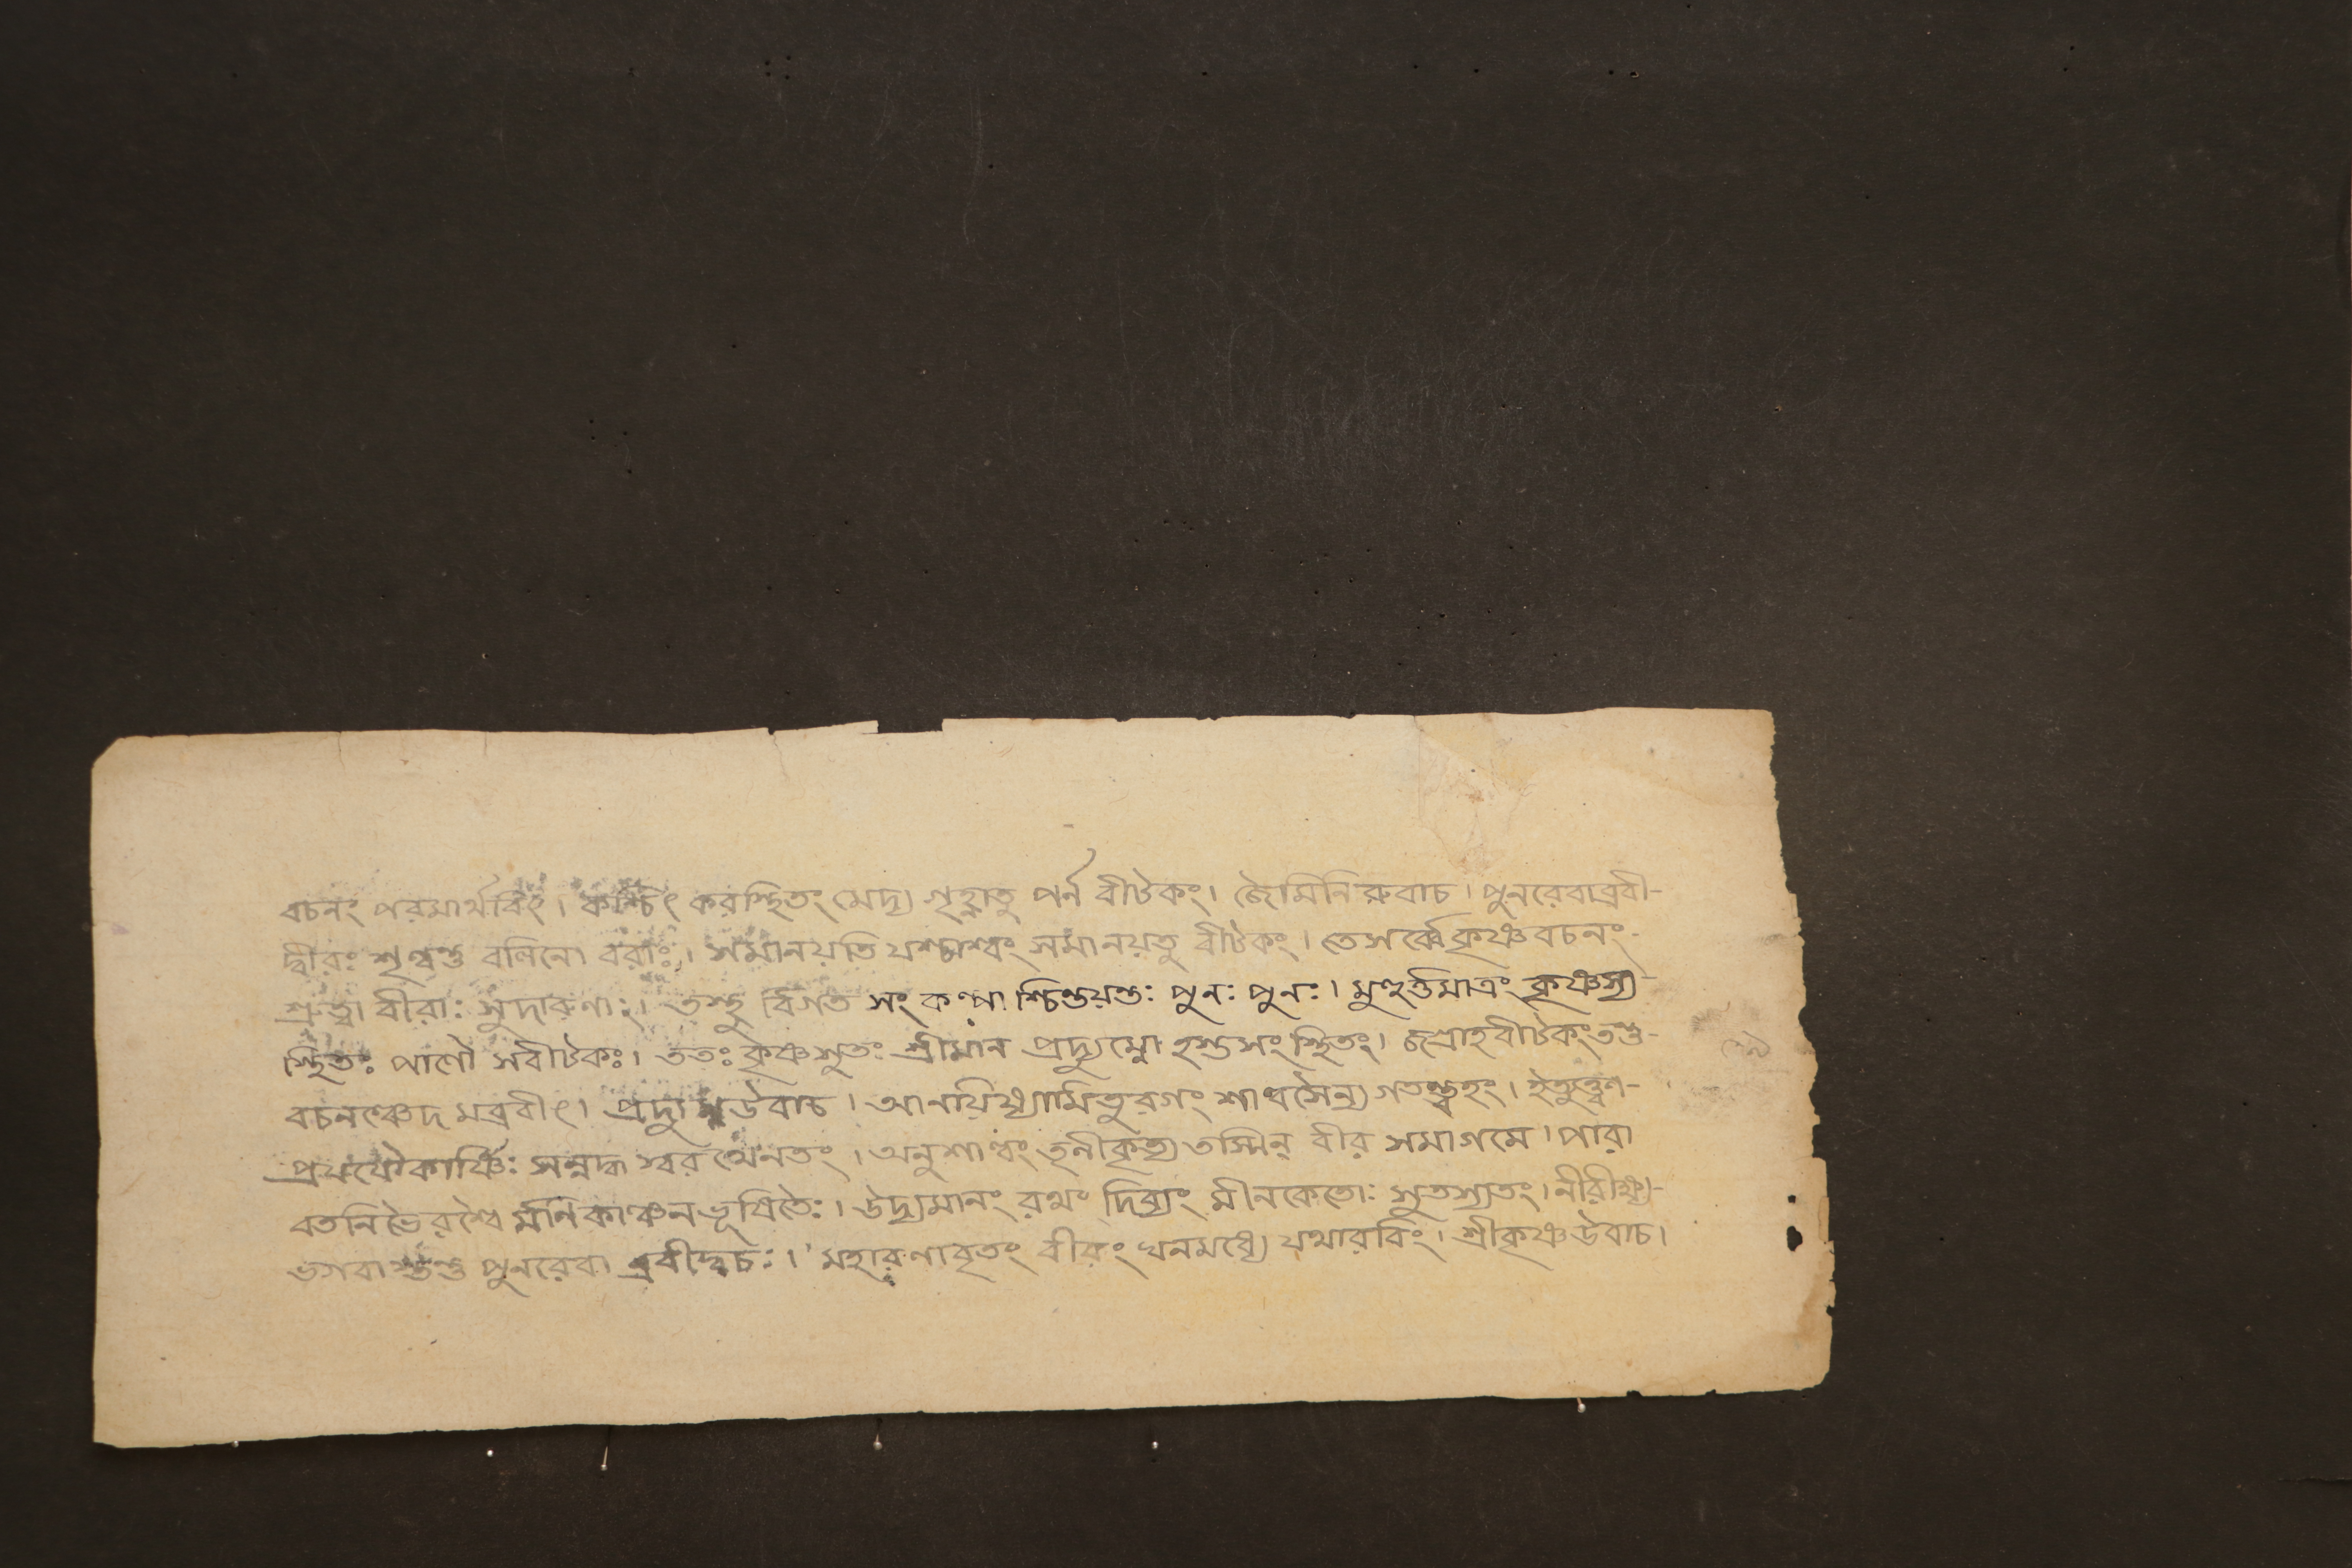 বচনং পরমার্থবিৎ। কশ্চিৎ করস্থিতং মেদ্য গৃহ্নাতু পর্ন বীটকং। জৈমিনিরুবাচ। পুনরেবাব্রবী-
দ্বীরঃ শৃণ্বন্তু বলিনো বরাঃ। সমানয়তি যশ্চাশ্বং সমানয়তু বীটকং। তে সর্ব্বে কৃষ্ণবচনং-
শ্রুত্বা বীরাঃ সুদারুণাঃ। তস্থু র্বিগত সংকল্পা শ্চিন্তয়ন্তঃ পুনঃ পুনঃ। মুহুর্ত্তমাত্রং কৃষ্ণস্য-
স্থিতঃ পাণৌ সবীটকঃ। ততঃ কৃষ্ণসুতঃ শ্রীমান প্রদ্যুম্নো হস্তসংস্থিতং। জগ্রাহবীটকংতন্তু-
বচনঞ্চেদ মব্রবীৎ। প্রদ্যুম্নউবাচ। আনয়িষ্যামিতুরগং শাল্বসৈন্য গতন্ত্বহং। ইত্যুক্ত্বা-
প্রযযৌকার্ষ্ণিঃ সন্নদ্ধ স্বরথেনতং। অনুশাল্বং তৃনীকৃত্য তস্মিন্ বীর সমাগমে। পারা
বতনিভৈরশ্বৈ র্মনিকাঞ্চনভূষিতৈঃ। উদ্যমানং রথং দিব্যং মীনকেতোঃ সুতস্যতং। নীরীক্ষ্য-
ভগবাংস্তন্তু পুনরেবা ব্রবীদ্বচঃ। মহারণাবৃতং বীরং ঘনমধ্যে যথারবিং। শ্রীকৃষ্ণউবাচ।